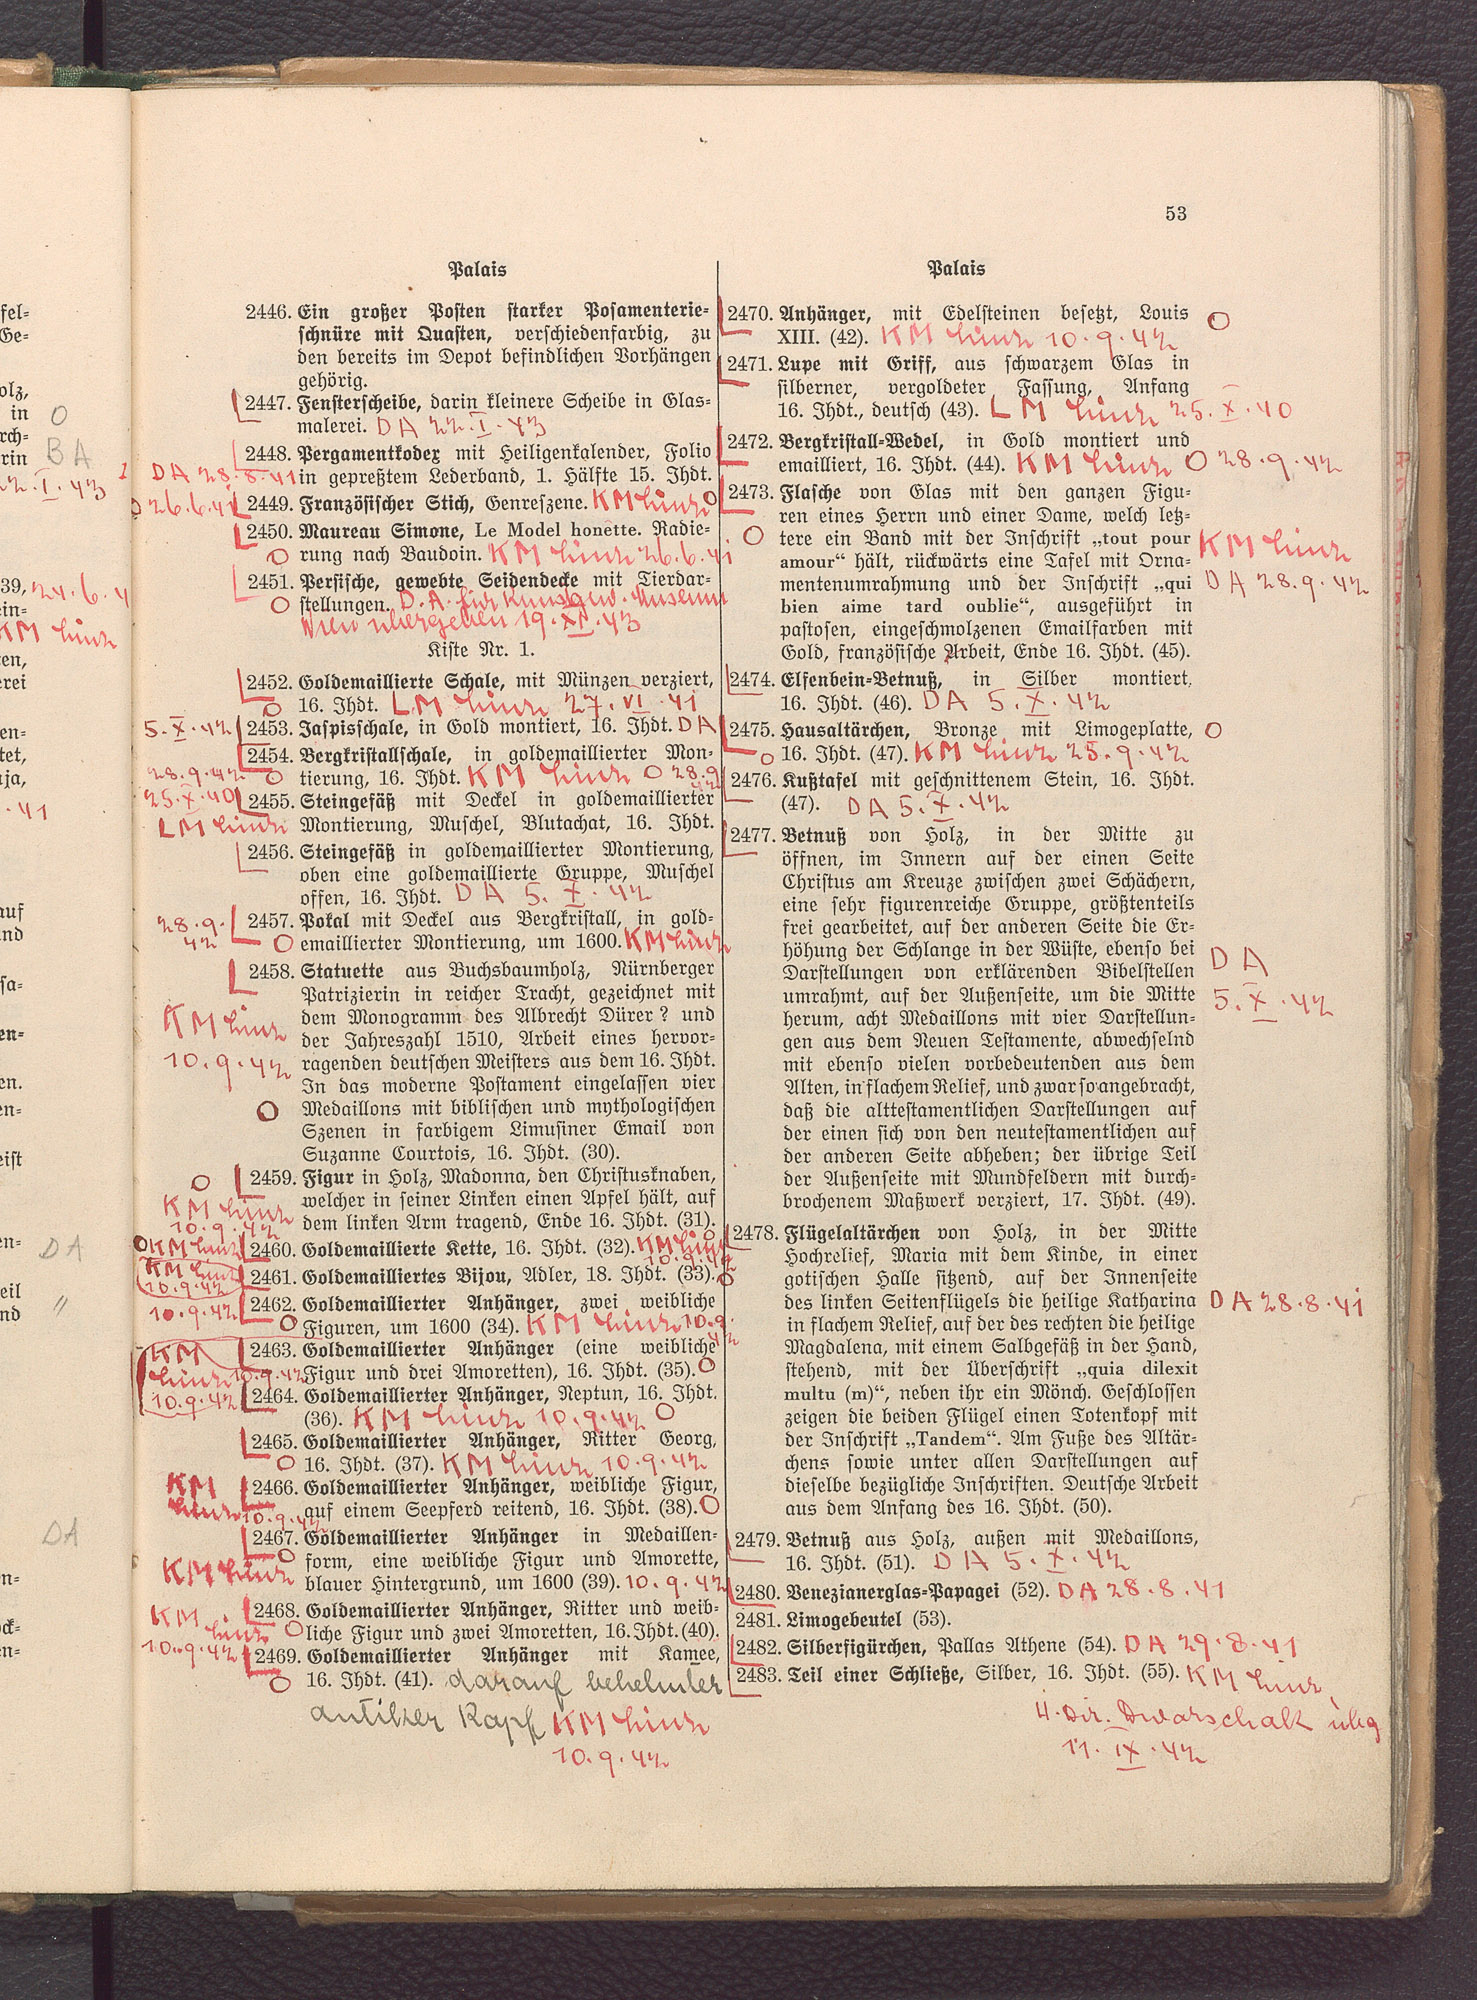 53
Palais
2446. Ein großer Posten starker Posamenterie-
schnüre mit Quasten, verschiedenfarbig, zu
den bereits im Depot befindlichen Vorhängen
gehörig.
2447. Fensterscheibe, darin kleinere Scheibe in Glas-
malerei. DA 22.I.43
2448. Pergamentkodex mit Heiligenkalender, Folio
DA 28.8.41 in gepreßtem Lederband, 1. Hälfte 15. Jhdt.
26.6.41 2449. Französischer Stich, Genreszene. KM Linz
2450. Maureau Simone, Le Model honêtte. Radie-
rung nach Baudoin. KM Linz 26.6.41
2451. Persische, gewebte Seidendecke mit Tierdar-
stellungen. D.A. für Kunstgew. Museum
Wien übergeben 19.XI.43
Kiste Nr. 1.
2452. Goldemaillierte Schale, mit Münzen verziert,
16. Jhdt. LM Linz 27.VI.41
5.X.42 2453. Jaspisschale, in Gold montiert, 16. Jhdt. DA
2454. Bergkristallschale, in goldemaillierter Mon-
28.9.42 tierung, 16. Jhdt. KM Linz 28.9.42
25.X.40 2455. Steingefäß mit Deckel in goldemaillierter
LM Linz Montierung, Muschel, Blutachat, 16. Jhdt.
2456. Steingefäß in goldemaillierter Montierung,
oben eine goldemaillierte Gruppe, Muschel
offen, 16. Jhdt. DA 5.X.42
28.9.42 2457. Pokal mit Deckel aus Bergkristall, in gold-
emaillierter Montierung, um 1600. KM Linz
2458. Statuette aus Buchsbaumholz, Nürnberger
Patrizierin in reicher Tracht, gezeichnet mit
KM Linz dem Monogramm des Albrecht Dürer? und
der Jahreszahl 1510, Arbeit eines hervor-
10.9.42 ragenden deutschen Meisters aus dem 16. Jhdt.
In das moderne Postament eingelassen vier
Medaillons mit biblischen und mythologischen
Szenen in farbigem Limusiner Email von
Suzanne Courtois, 16. Jhdt. (30).
2459. Figur in Holz, Madonna, den Christusknaben,
KM Linz welcher in seiner Linken einen Apfel hält, auf
10.9.42 dem linken Arm tragend, Ende 16. Jhdt. (31).
KM Linz 2460. Goldemaillierte Kette, 16. Jhdt. (32). KM Linz
10.9.42
KM Linz 2461. Goldemailliertes Bijou, Adler, 18. Jhdt. (33).
10.9.42
10.9.42 2462. Goldemaillierter Anhänger, zwei weibliche
Figuren, um 1600 (34). KM Linz 10.9.42
KM Linz 2463. Goldemaillierter Anhänger (eine weibliche
10.9.42 Figur und drei Amoretten), 16. Jhdt. (35).
10.9.42 2464. Goldemaillierter Anhänger, Neptun, 16. Jhdt.
(36). KM Linz 10.9.42
2465. Goldemaillierter Anhänger, Ritter Georg,
16. Jhdt. (37). KM Linz 10.9.42
KM Linz 2466. Goldemaillierter Anhänger, weibliche Figur,
10.9.42 auf einem Seepferd reitend, 16. Jhdt. (38).
2467. Goldemaillierter Anhänger in Medaillen-
KM Linz form, eine weibliche Figur und Amorette,
blauer Hintergrund, um 1600 (39). 10.9.42
KM Linz 2468. Goldemaillierter Anhänger, Ritter und weib-
10.9.42 liche Figur und zwei Amoretten, 16. Jhdt. (40).
2469. Goldemaillierter Anhänger mit Kamee,
16. Jhdt. (41). darauf behelmter
antiker Kopf KM Linz
10.9.42
Palais
2470. Anhänger, mit Edelsteinen besetzt, Louis
XIII. (42). KM Linz 10.9.42
2471. Lupe mit Griff, aus schwarzem Glas in
silberner, vergoldeter Fassung, Anfang
16. Jhdt., deutsch (43). LM Linz 25.X.40
2472. Bergkristall-Wedel, in Gold montiert und
emailliert, 16. Jhdt. (44). KM Linz 28.9.42
2473. Flasche von Glas mit den ganzen Figu-
ren eines Herrn und einer Dame, welch letz-
tere ein Band mit der Inschrift „tout pour KM Linz
amour“ hält, rückwärts eine Tafel mit Orna-
mentenumrahmung und der Inschrift „qui DA 28.9.42
bien aime tard oublie“, ausgeführt in
pastosen, eingeschmolzenen Emailfarben mit
Gold, französische Arbeit, Ende 16. Jhdt. (45).
2474. Elfenbein-Betnuß, in Silber montiert,
16. Jhdt. (46). DA 5.X.42
2475. Hausaltärchen, Bronze mit Limogeplatte,
16. Jhdt. (47). KM Linz 25.9.42
2476. Kußtafel mit geschnittenem Stein, 16. Jhdt.
(47). DA 5.X.42
2477. Betnuß von Holz, in der Mitte zu
öffnen, im Innern auf der einen Seite
Christus am Kreuze zwischen zwei Schächern,
eine sehr figurenreiche Gruppe, größtenteils
frei gearbeitet, auf der anderen Seite die Er-
höhung der Schlange in der Wüste, ebenso bei
Darstellungen von erklärenden Bibelstellen DA
umrahmt, auf der Außenseite, um die Mitte 5.X.42
herum, acht Medaillons mit vier Darstellun-
gen aus dem Neuen Testamente, abwechselnd
mit ebenso vielen vorbedeutenden aus dem
Alten, in flachem Relief, und zwar so angebracht,
daß die alttestamentlichen Darstellungen auf
der einen sich von den neutestamentlichen auf
der anderen Seite abheben; der übrige Teil
der Außenseite mit Mundfeldern mit durch-
brochenem Maßwerk verziert, 17. Jhdt. (49).
2478. Flügelaltärchen von Holz, in der Mitte
Hochrelief, Maria mit dem Kinde, in einer
gotischen Halle sitzend, auf der Innenseite
des linken Seitenflügels die heilige Katharina DA 28.8.41
in flachem Relief, auf der des rechten die heilige
Magdalena, mit einem Salbgefäß in der Hand,
stehend, mit der Überschrift „quia dilexit
multu (m)“, neben ihr ein Mönch. Geschlossen
zeigen die beiden Flügel einen Totenkopf mit
der Inschrift „Tandem“. Am Fuße des Altär-
chens sowie unter allen Darstellungen auf
dieselbe bezügliche Inschriften. Deutsche Arbeit
aus dem Anfang des 16. Jhdt. (50).
2479. Betnuß aus Holz, außen mit Medaillons,
16. Jhdt. (51). DA 5.X.42
2480. Venezianerglas-Papagei (52). DA 28.8.41
2481. Limogebeutel (53).
2482. Silberfigürchen, Pallas Athene (54). DA 29.8.41
2483. Teil einer Schließe, Silber, 16. Jhdt. (55). KM Linz,
Dir. Dworschak übg
11.IX.42